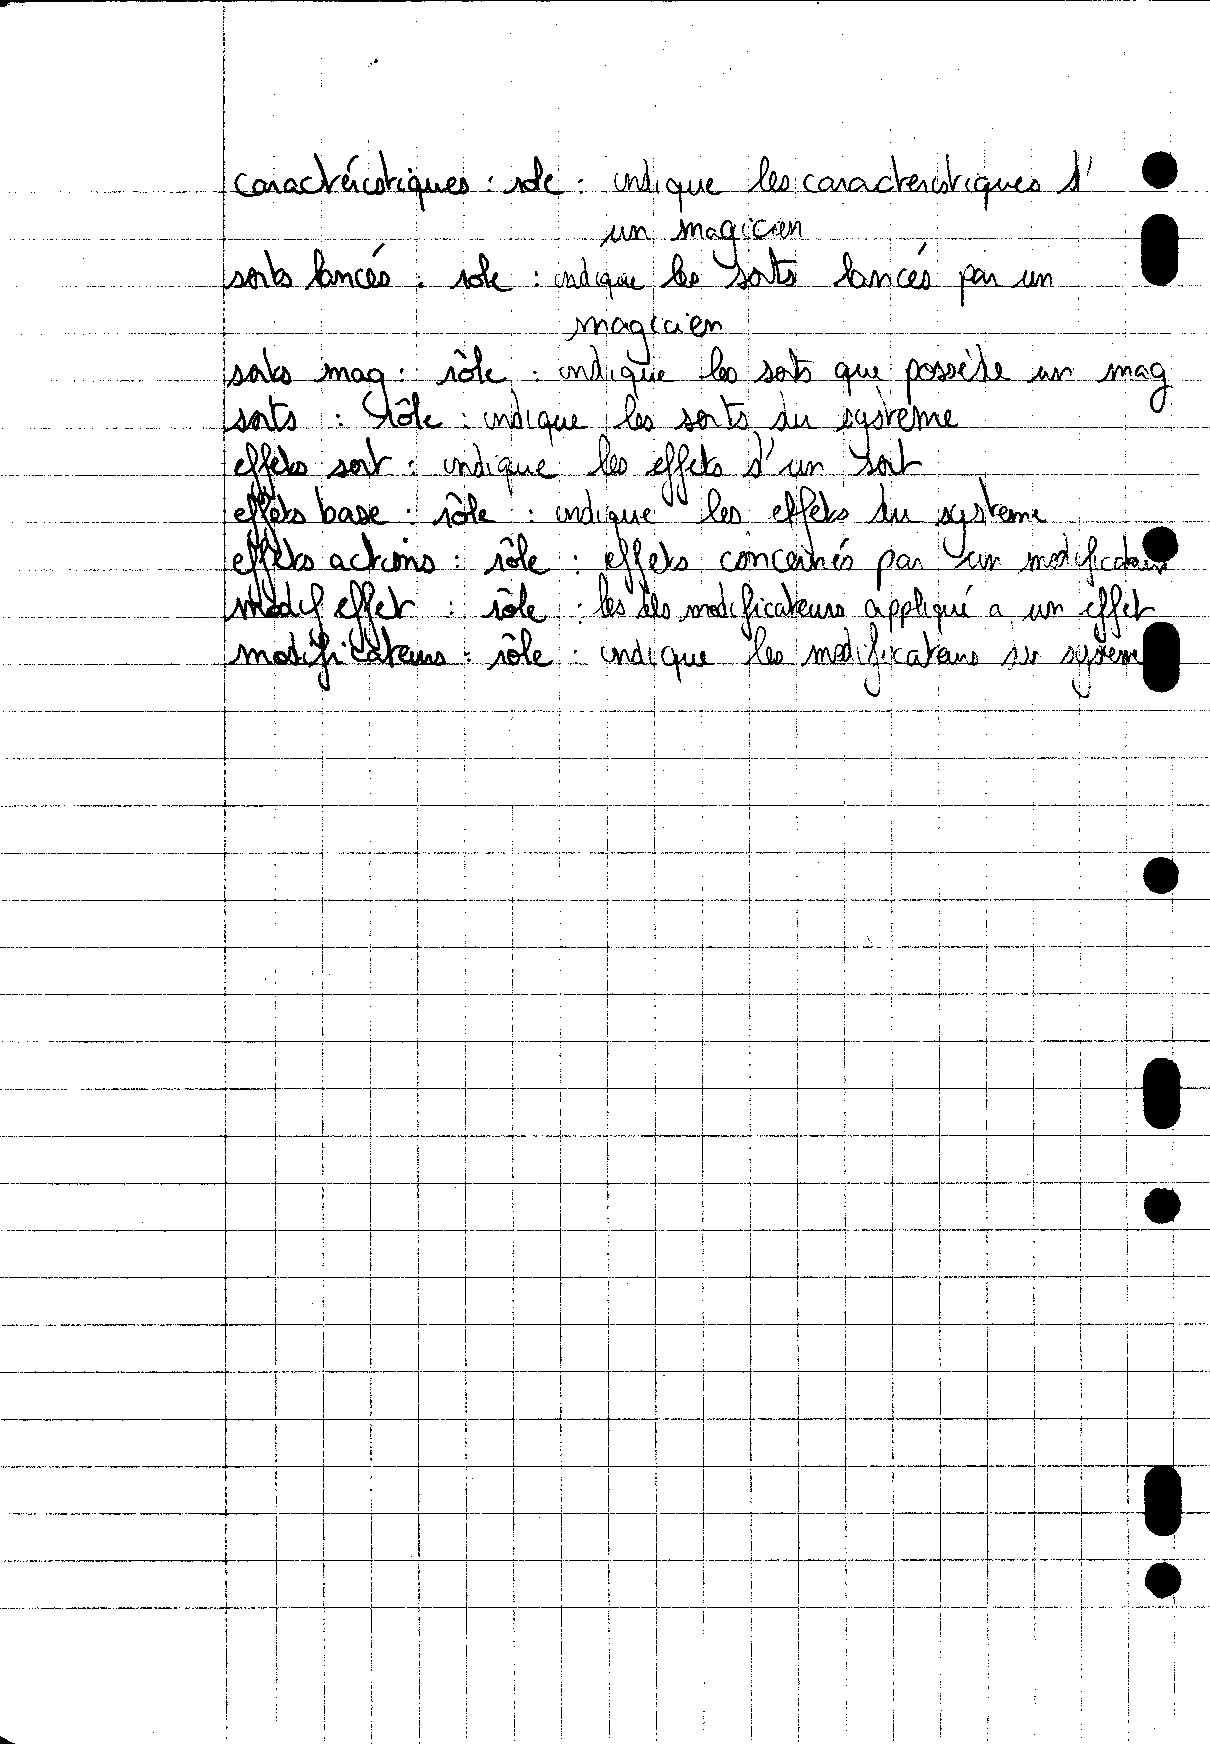 caractéristiques : role : indique les caracteristiques d'
un magicien
sorts lancés : role : indique les sorts lancés par un
magicien
sorts mag : rôle : indique les sorts que possède un mag
sorts : rôle : indique les sorts du système
effets sort : indique les effets d'un sort
effets base : rôle : indique les effets du systeme
effets actions : rôle : effets concernés par un modificateur
modif effet : rôle : les modificateurs appliqué a un effet
modificateurs : rôle : indique les modificateurs du systeme